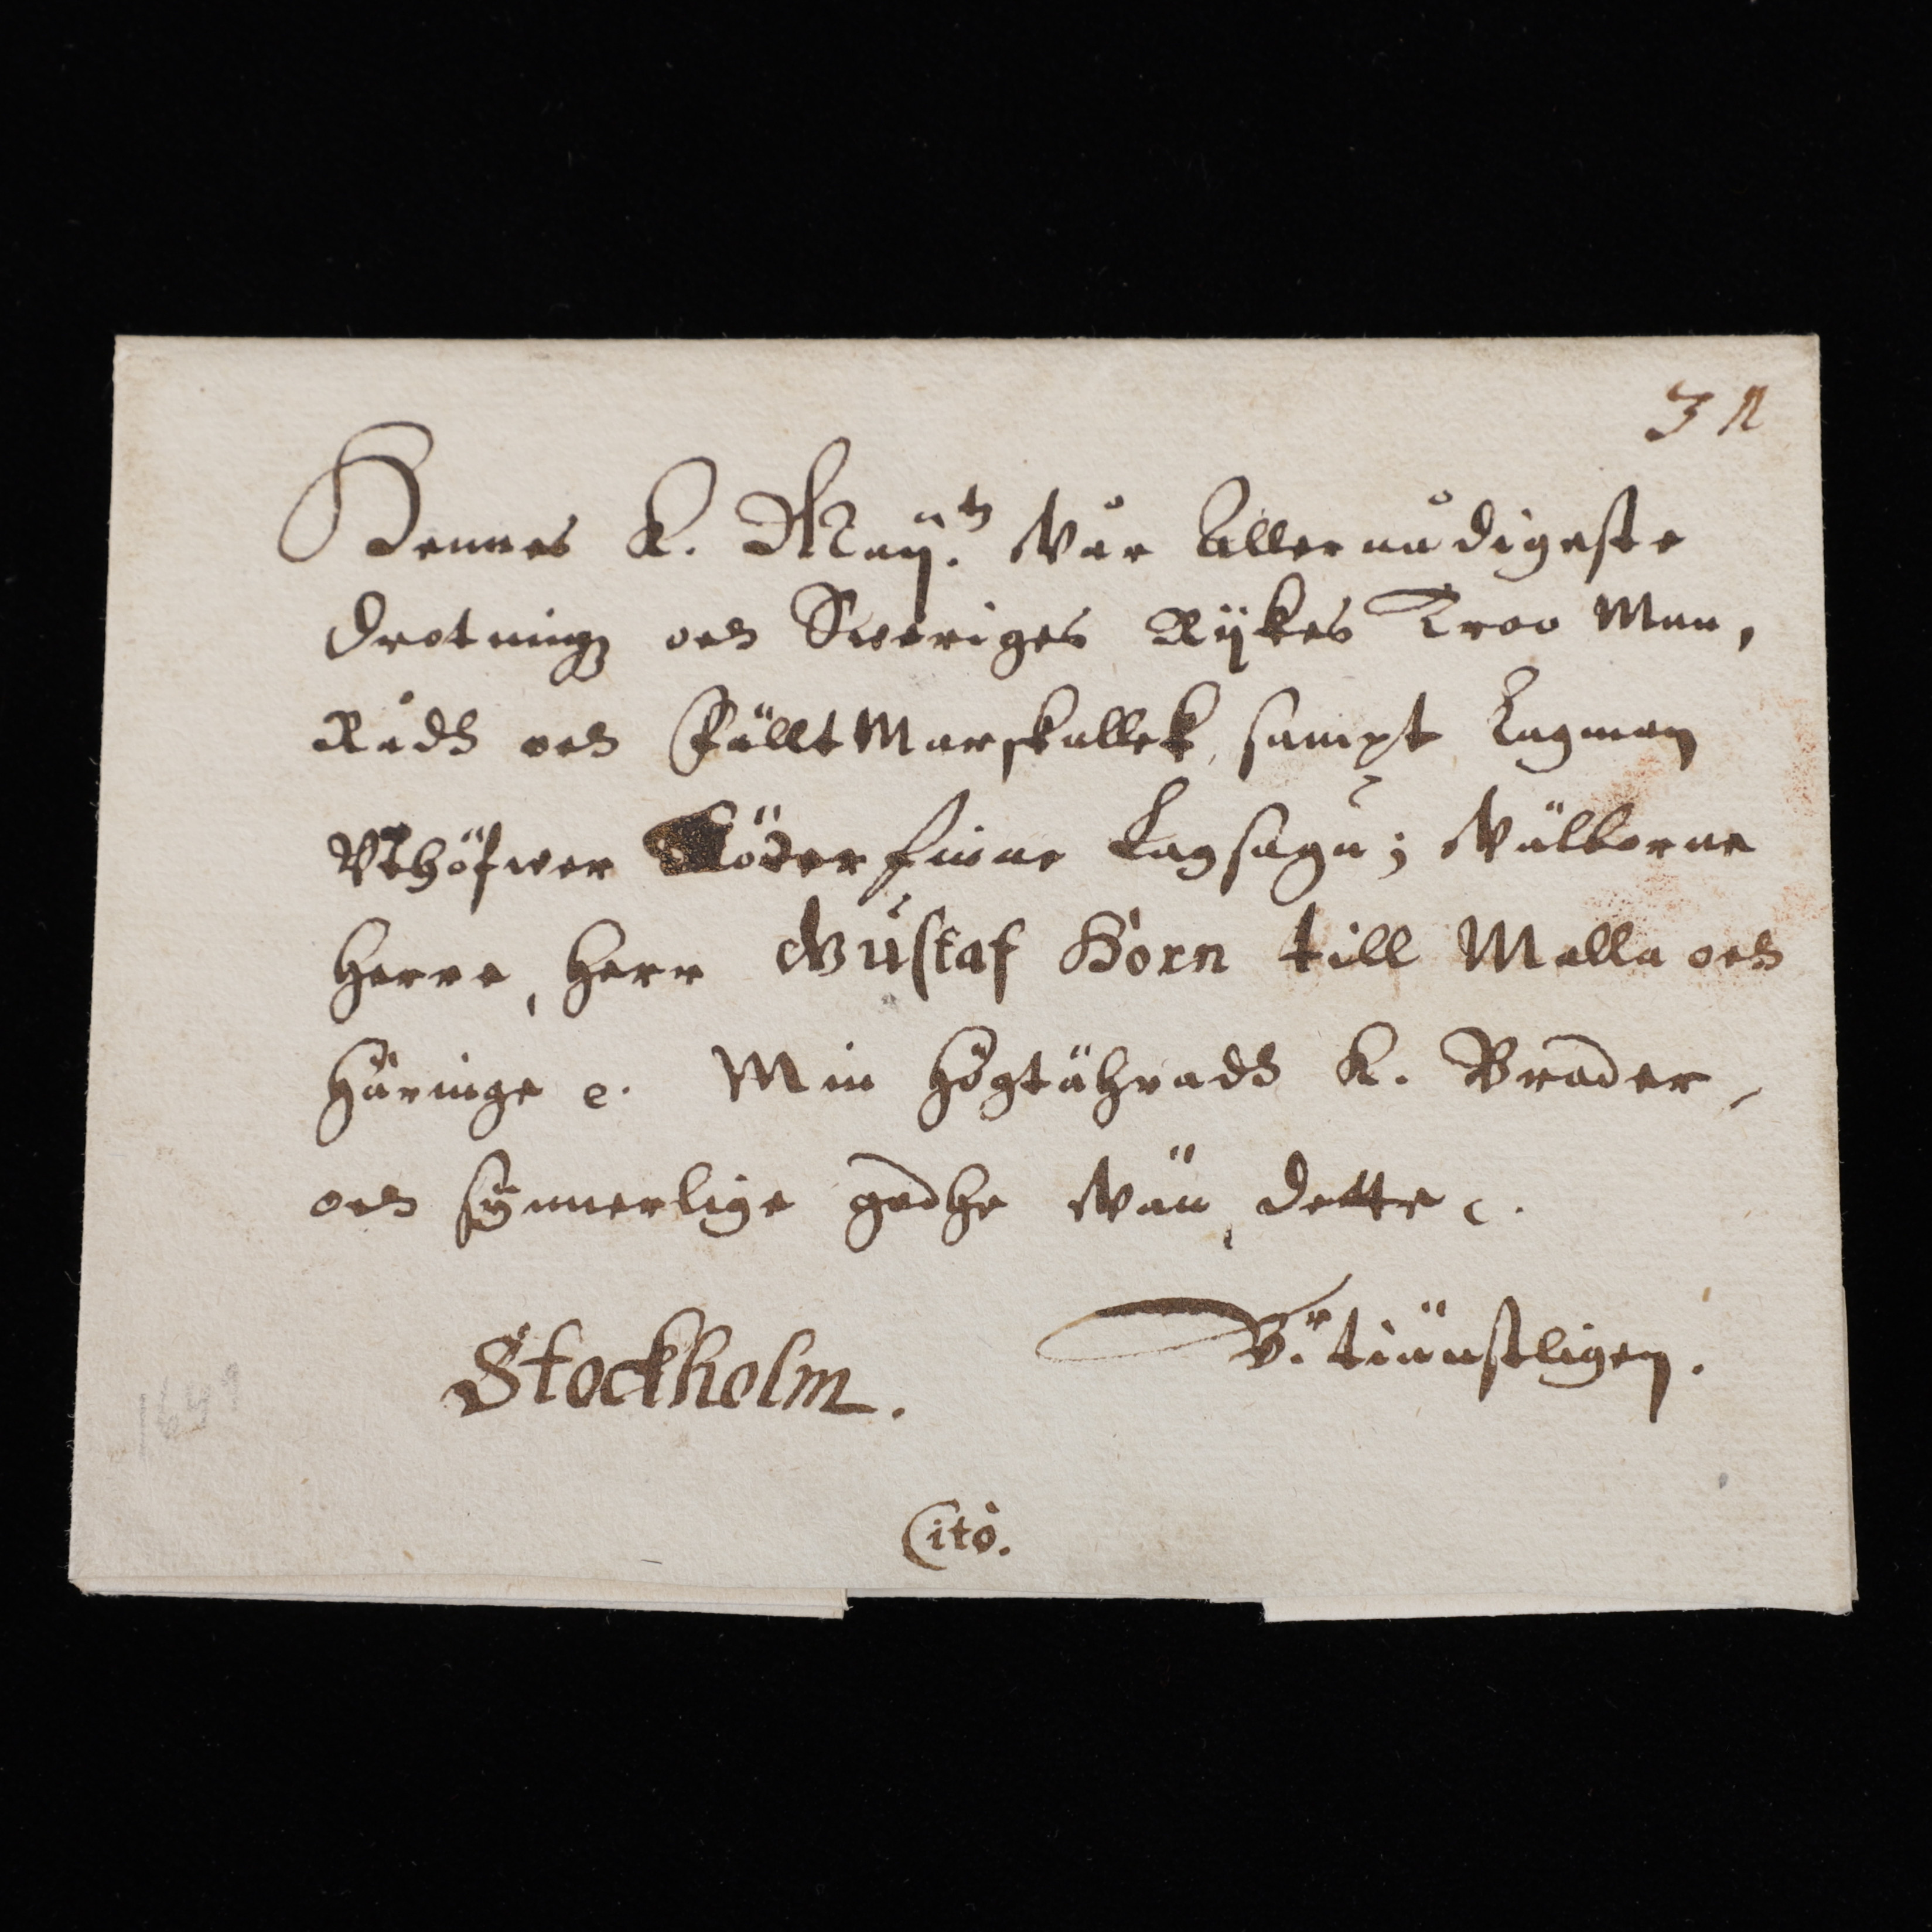 32
Hennes K. Maij:tz Wår Allernådigeste
Drotningz och Sweriges Rijkes Troo Man,
Rådh och Fälltmarskallek, sampt Lagman
Vthöfwer Söderfinne Lagsagu; Wälborne
Herre, Herr Gustaf Horn till Malla och
Häringe etc. Min Högtährade K. Broder,
och synnerlige godhe Wän, dette etc.
Stockholm. V:r tiänstligen.
Citò.